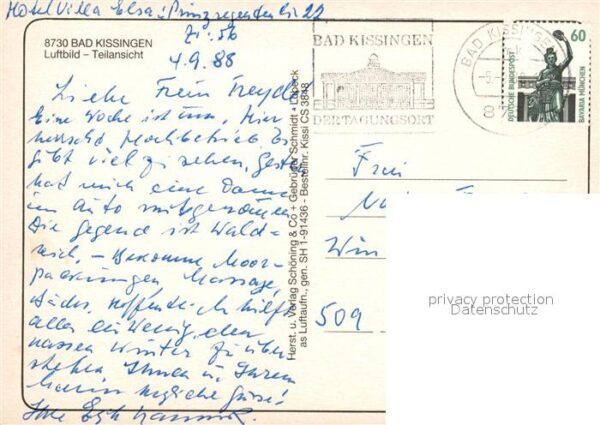 Hotel Villa Elsa, Prinzregentenstr 22
Zi. 56
4.9.88
8730 BAD KISSINGEN
Luftbild – Teilansicht
Liebe Frau
Eine Woche ist um, Hier
herrscht Hochbetrieb. Es
gibt viel zu sehen, Gestern
hat mich eine Dame
im Auto mitgenommen
Die Gegend ist Wald-
reich, – Bekomme Moor-
packungen, Massage,
Bäder, hoffentlich hilft
alles ein wenig, den
nassen Winter zu über-
stehen Ihnen u. Ihrem
Mann herzliche Grüsse
Ihre
Herst. u. Verlag Schöning & Co + Gebrüder Schmidt · Lübeck
as Luftaufn., gen. SH 1-91436 - Bestellnr. Kissi CS 3848
BAD KISSINGEN
DER TAGUNGSORT
BAD KISSINGEN
60
DEUTSCHE BUNDESPOST
BAVARIA MÜNCHEN
Frau
509
privacy protection
Datenschutz